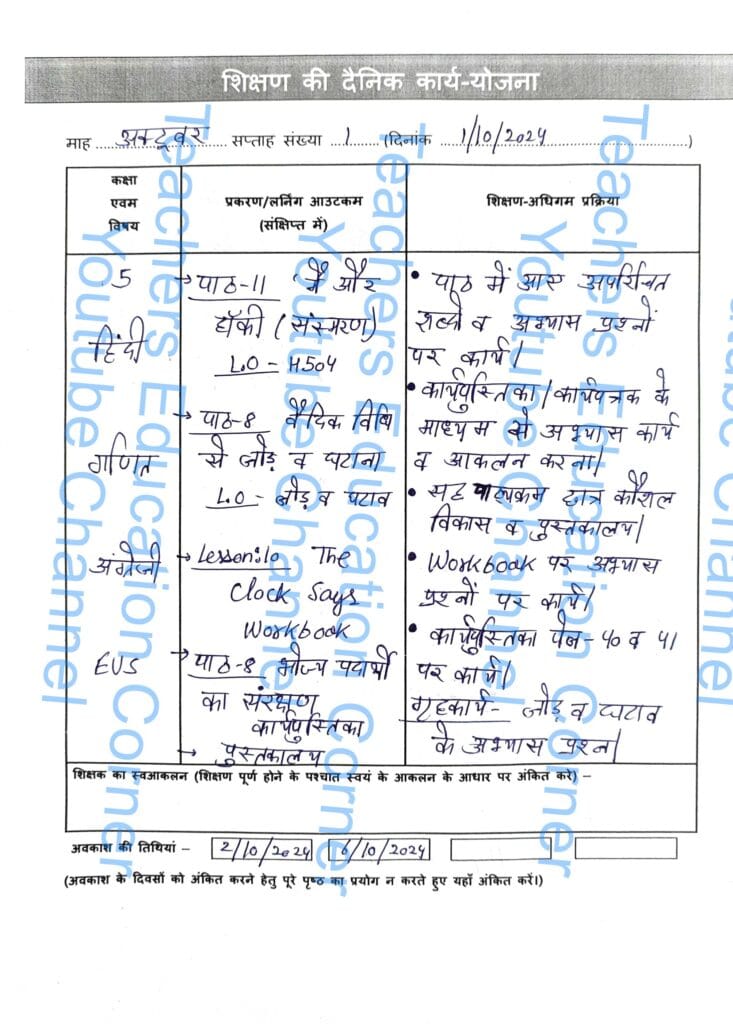 शिक्षण की दैनिक कार्य-योजना
माह अक्टूबर सप्ताह संख्या 1 (दिनांक 1/10/2024)
कक्षा
एवम
विषय
प्रकरण/लर्निंग आउटकम
(संक्षिप्त में)
शिक्षण-अधिगम प्रक्रिया
5
हिंदी
गणित
अंग्रेजी
EVS
→ पाठ-11 मैं और
हॉकी (संस्मरण)
L.O - H504
→ पाठ-8 वैदिक विधि
से जोड़ व घटाना
L.O - जोड़ व घटाव
→ Lesson:10 The
Clock Says
Workbook
→ पाठ-8 भोज्य पदार्थों
का संरक्षण
कार्यपुस्तिका
→ पुस्तकालय
• पाठ में आए अपरिचित
शब्दो व अभ्यास प्रश्नों
पर कार्य।
• कार्यपुस्तिका/कार्यपत्रक के
माध्यम से अभ्यास कार्य
व आकलन करना।
• सह पाठ्यक्रम छात्र कौशल
विकास व पुस्तकालय।
• Workbook पर अभ्यास
प्रश्नों पर कार्य।
• कार्यपुस्तिका पेज - 40 व 41
पर कार्य।
गृहकार्य- जोड़ व घटाव
के अभ्यास प्रश्न।
शिक्षक का स्वआकलन (शिक्षण पूर्ण होने के पश्चात स्वयं के आकलन के आधार पर अंकित करें) –
अवकाश की तिथियां – 2/10/2024 6/10/2024
(अवकाश के दिवसों को अंकित करने हेतु पूरे पृष्ठ का प्रयोग न करते हुए यहाँ अंकित करें।)
Teachers Education Corner
Youtube Channel
Teachers Education Corner
Youtube Channel
Teachers Education Corner
Youtube Channel